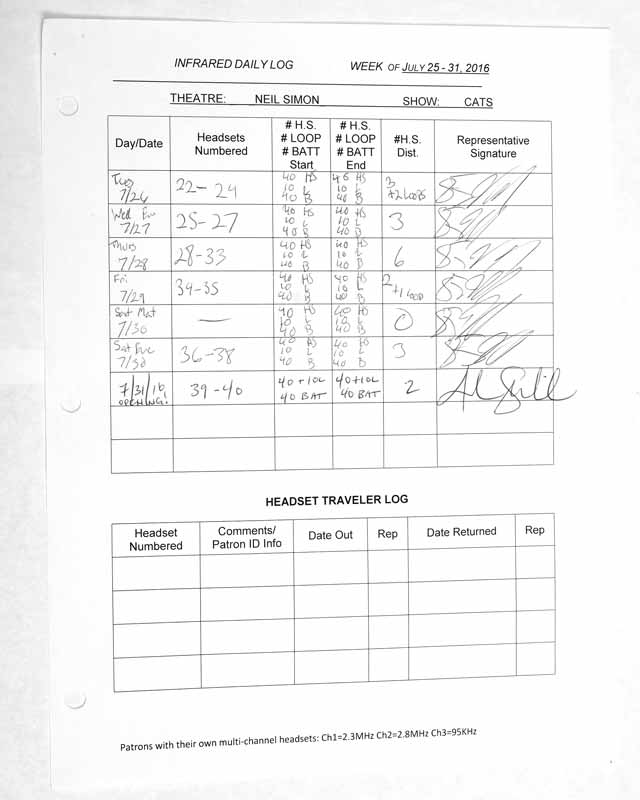 INFRARED DAILY LOG WEEK OF JULY 25 - 31, 2016
THEATRE: NEIL SIMON SHOW: CATS
Day/Date
Headsets
Numbered
# H.S.
# LOOP
# BATT
Start
# H.S.
# LOOP
# BATT
End
#H.S.
Dist.
Representative
Signature
Tues
7/26
22 - 24
40 HS
10 L
40 B
40 HS
10 L
40 B
3
+2 LOOPS
Wed Eve
7/27
25 - 27
40 HS
10 L
40 B
40 HS
10 L
40 B
3
Thurs
7/28
28 - 33
40 HS
10 L
40 B
40 HS
10 L
40 B
6
Fri
7/29
34 - 35
40 HS
10 L
40 B
40 HS
10 L
40 B
2
+1 LOOP
Sat Mat
7/30
—
40 HS
10 L
40 B
40 HS
10 L
40 B
0
Sat Eve
7/30
36 - 38
40 HS
10 L
40 B
40 HS
10 L
40 B
3
7/31/16
OPENING!
39 - 40
40 + 10L
40 BAT
40 + 10L
40 BAT
2
HEADSET TRAVELER LOG
Headset
Numbered
Comments/
Patron ID Info
Date Out
Rep
Date Returned
Rep
Patrons with their own multi-channel headsets: Ch1=2.3MHz Ch2=2.8MHz Ch3=95KHz